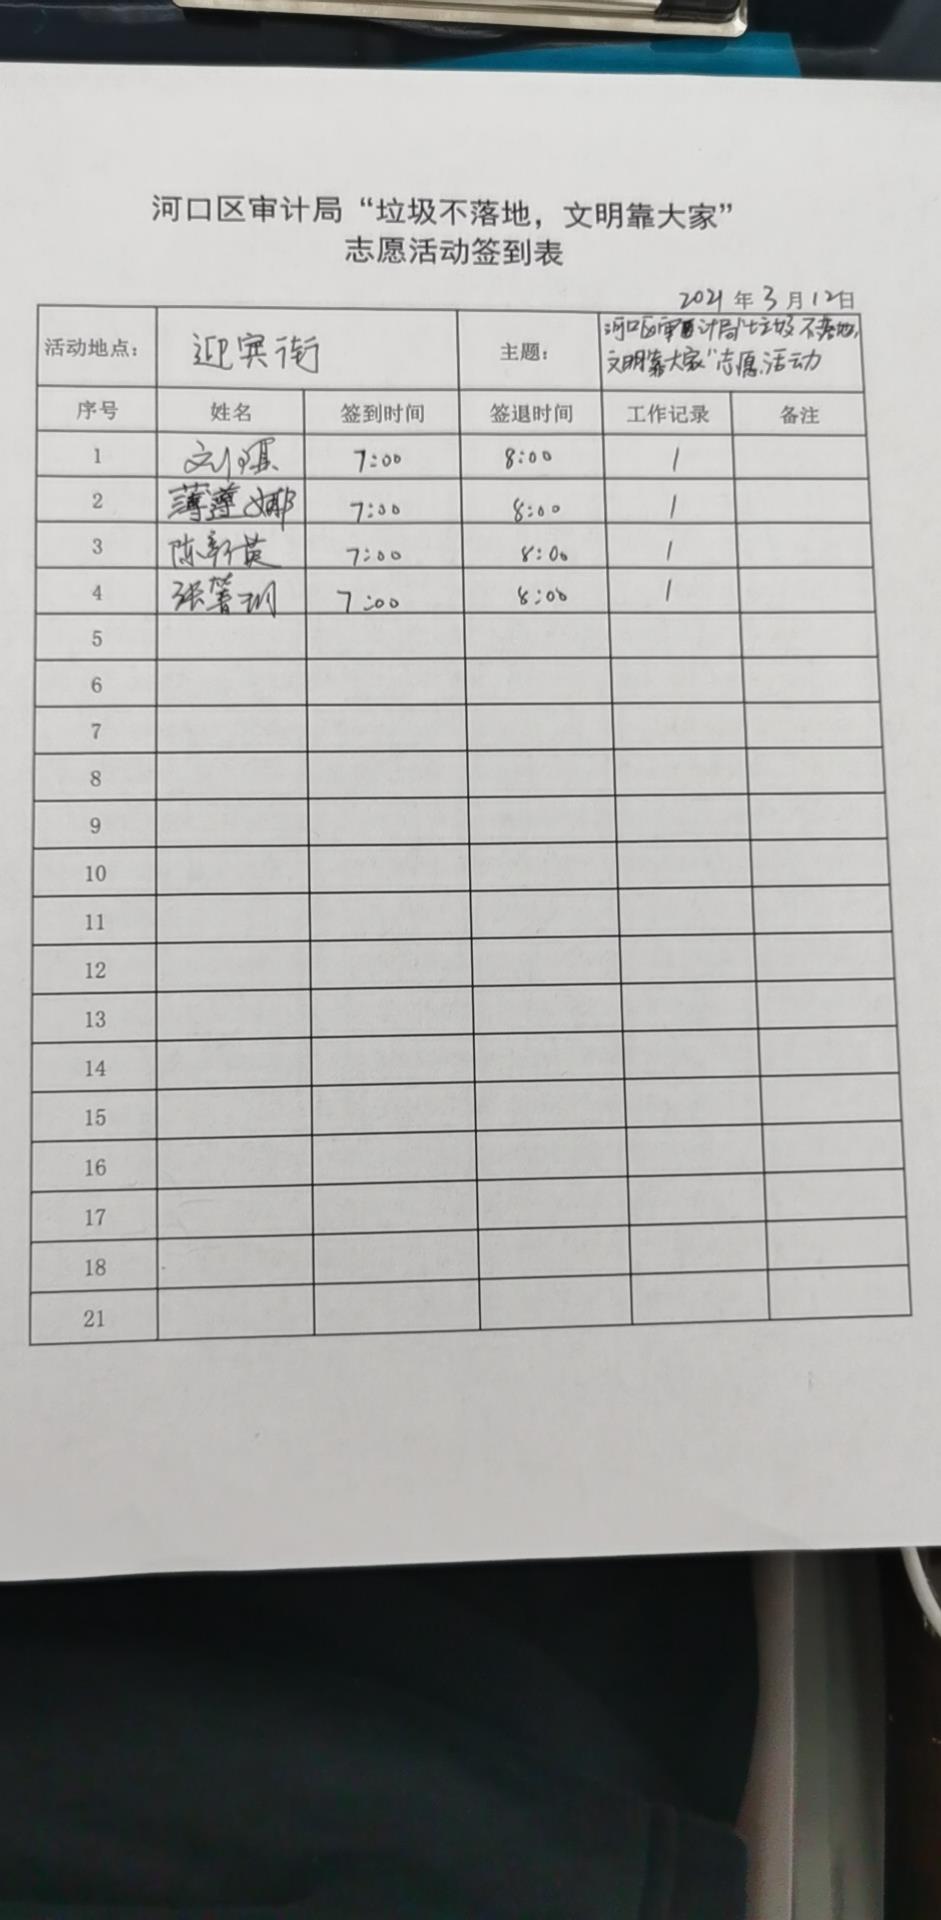 河口区审计局“垃圾不落地，文明靠大家”
志愿活动签到表
2021 年 3 月 12 日
活动地点： 迎宾街 主题： 河口区审计局“垃圾不落地，
文明靠大家”志愿活动
序号 姓名 签到时间 签退时间 工作记录 备注
1 刘 7:00 8:00 1
2 薄莲娜 7:00 8:00 1
3 陈新英 7:00 8:00 1
4 张 7:00 8:00 1
5
6
7
8
9
10
11
12
13
14
15
16
17
18
21